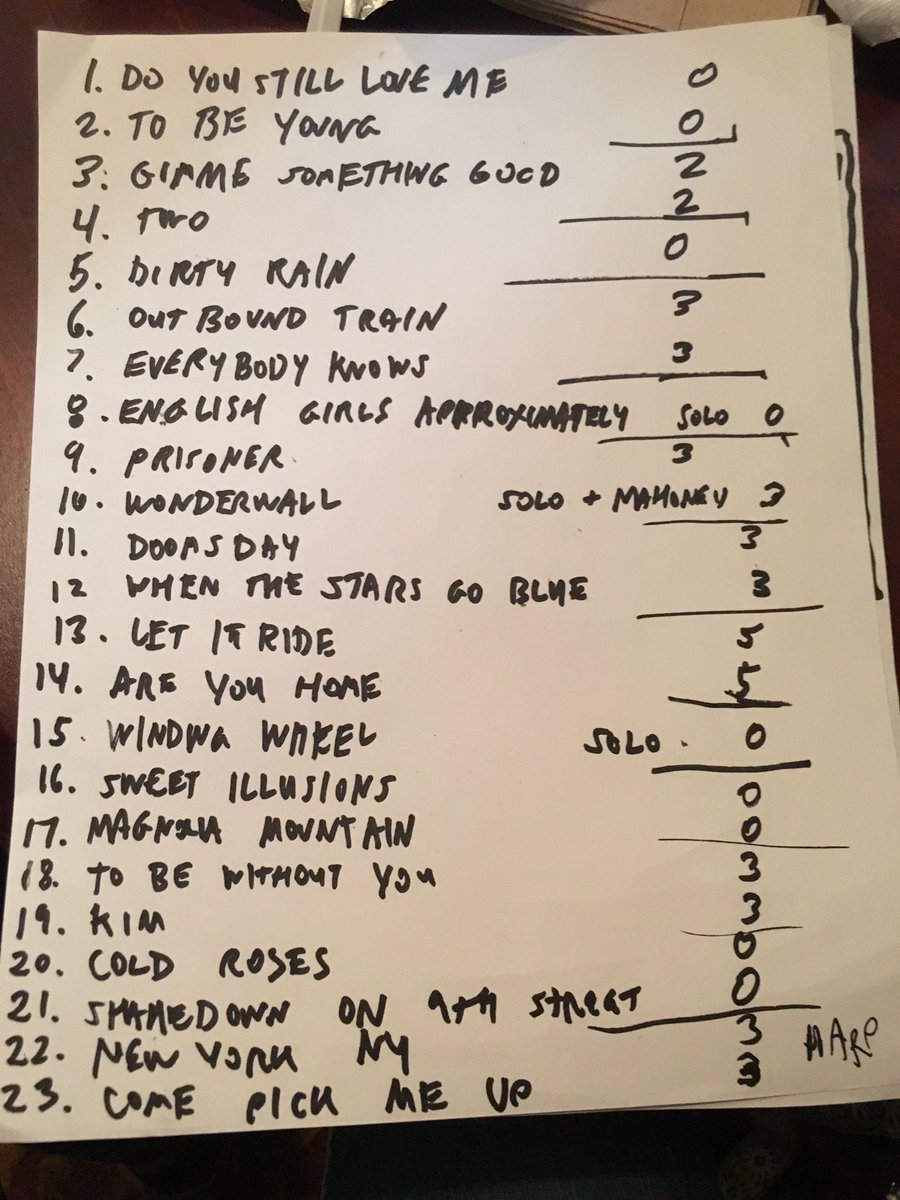 1. DO YOU STILL LOVE ME 0
2. TO BE YOUNG 0
3. GIMME SOMETHING GOOD 2
4. TWO 2
5. DIRTY RAIN 0
6. OUTBOUND TRAIN 3
7. EVERYBODY KNOWS 3
8. ENGLISH GIRLS APPROXIMATELY SOLO 0
9. PRISONER 3
10. WONDERWALL SOLO + MAHONEY 3
11. DOOMSDAY 3
12 WHEN THE STARS GO BLUE 3
13. LET IT RIDE 5
14. ARE YOU HOME 5
15. WINDING WHEEL SOLO. 0
16. SWEET ILLUSIONS 0
17. MAGNOLIA MOUNTAIN 0
18. TO BE WITHOUT YOU 3
19. KIM 3
20. COLD ROSES 0
21. SHAKEDOWN ON 9TH STREET 0
22. NEW YORK NY 3 HARP
23. COME PICK ME UP 3